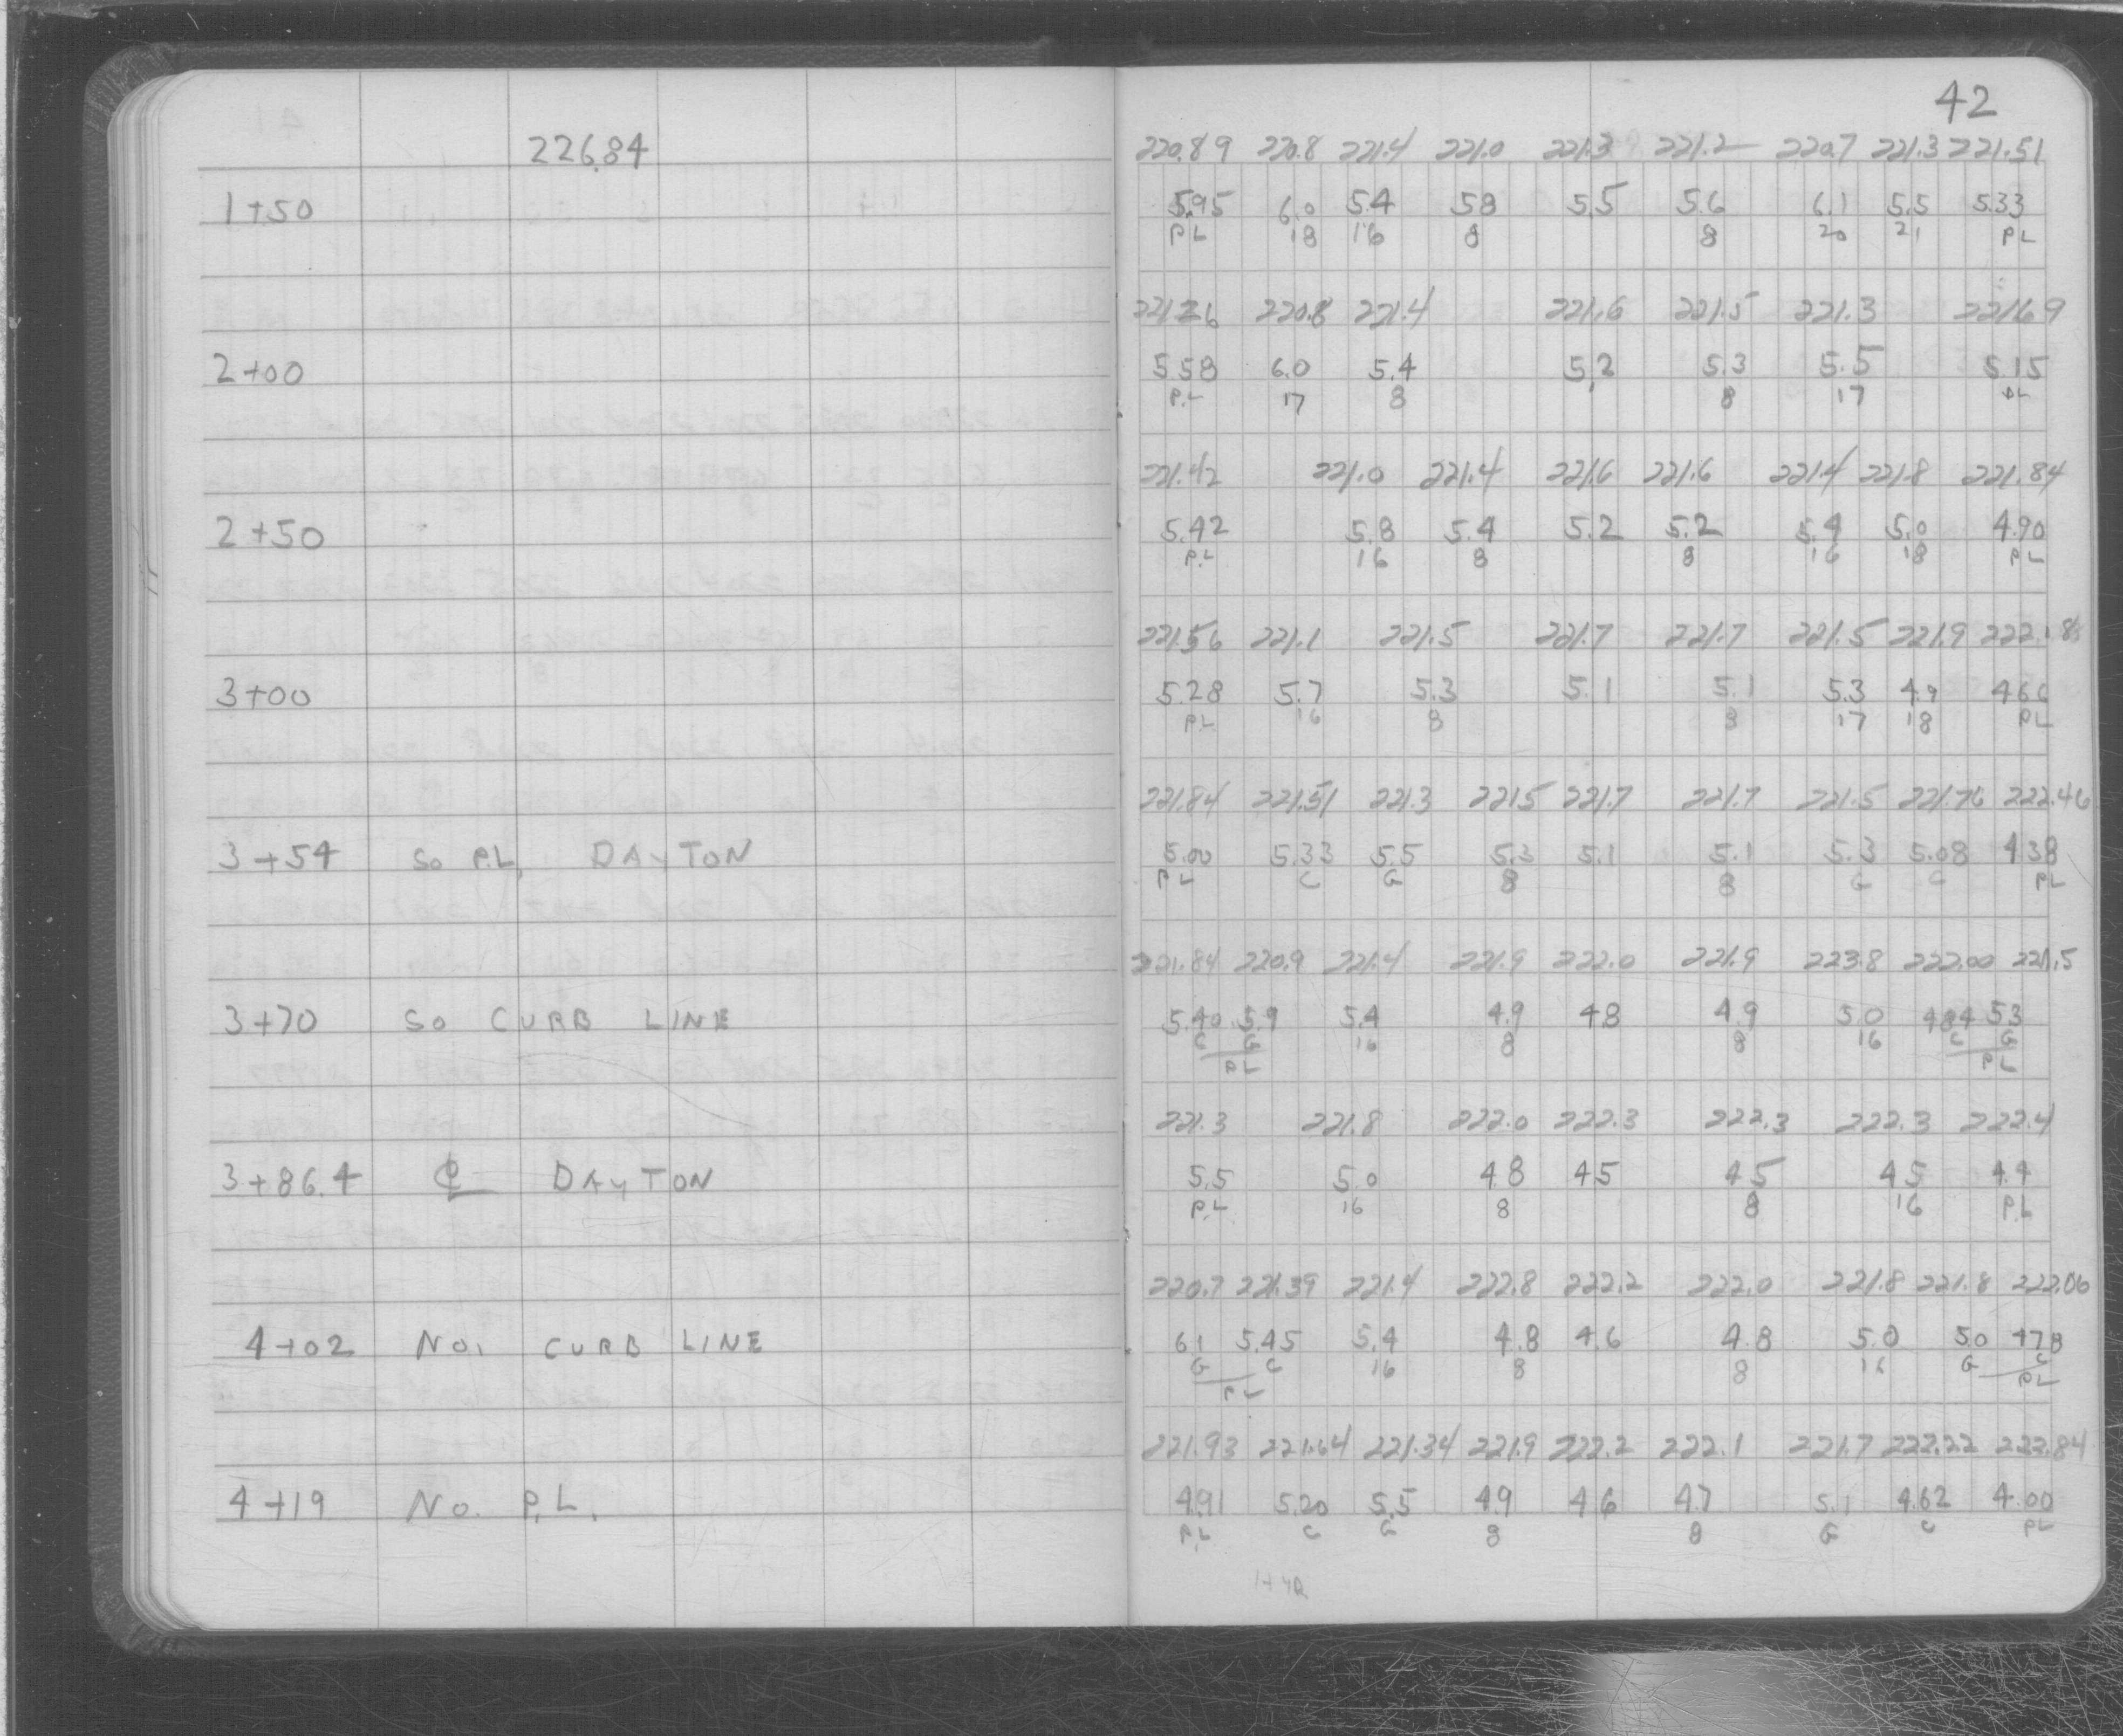 42
226.84
220.89 220.8 221.4 221.0 221.3 221.2 220.7 221.3 221.51
1+50 5.95 6.0 5.4 5.8 5.5 5.6 6.1 5.5 5.33
P.L 18 16 8 8 20 21 P.L
221.26 220.8 221.4 221.6 221.5 221.3 221.69
2+00 5.58 6.0 5.4 5.2 5.3 5.5 5.15
P.L 17 8 8 17 P.L
221.42 221.0 221.4 221.6 221.6 221.4 221.8 221.84
2+50 5.42 5.8 5.4 5.2 5.2 5.4 5.0 4.90
P.L 16 8 8 16 18 P.L
221.56 221.1 221.5 221.7 221.7 221.5 221.9 222.18
3+00 5.28 5.7 5.3 5.1 5.1 5.3 4.9 4.66
P.L 16 8 8 17 18 P.L
221.84 221.51 221.3 221.5 221.7 221.7 221.5 221.76 222.46
3+54 So P.L, DAYTON 5.00 5.33 5.5 5.3 5.1 5.1 5.3 5.08 4.38
P.L C G 8 8 G C P.L
221.84 220.9 221.4 221.9 222.0 221.9 223.8 222.00 221.5
3+70 SO CURB LINE 5.40 5.9 5.4 4.9 4.8 4.9 5.0 4.84 5.3
C G 16 8 8 16 C G
P.L P.L
221.3 221.8 222.0 222.3 222.3 222.3 222.4
3+86.4 ℄ DAYTON 5.5 5.0 4.8 4.5 4.5 4.5 4.4
P.L 16 8 8 16 P.L
220.7 221.39 221.4 222.8 222.2 222.0 221.8 221.8 222.06
4+02 No. CURB LINE 6.1 5.45 5.4 4.8 4.6 4.8 5.0 5.0 4.78
G C 16 8 8 16 G C
P.L P.L
221.93 221.64 221.34 221.9 222.2 222.1 221.7 222.22 222.84
4+19 No. P.L. 4.91 5.20 5.5 4.9 4.6 4.7 5.1 4.62 4.00
P.L C G 8 8 G C P.L